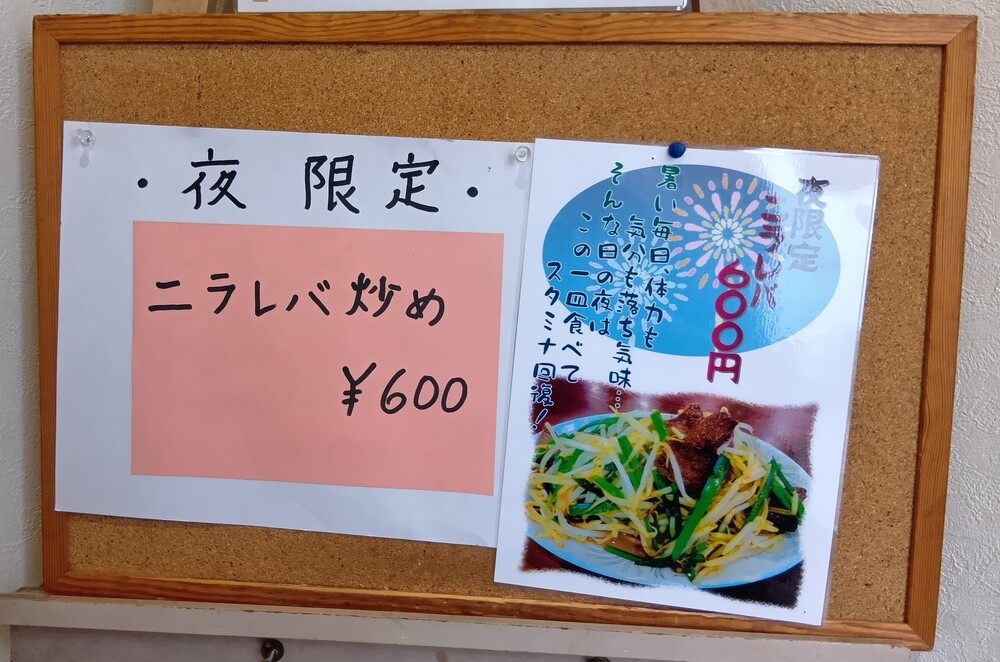 ・夜 限定・
ニラレバ炒め
¥600
夜限定
ニラレバ
600円
暑い毎日、体力も
気分も落ち気味…
そんな日の夜は
この一皿食べて
スタミナ回復!